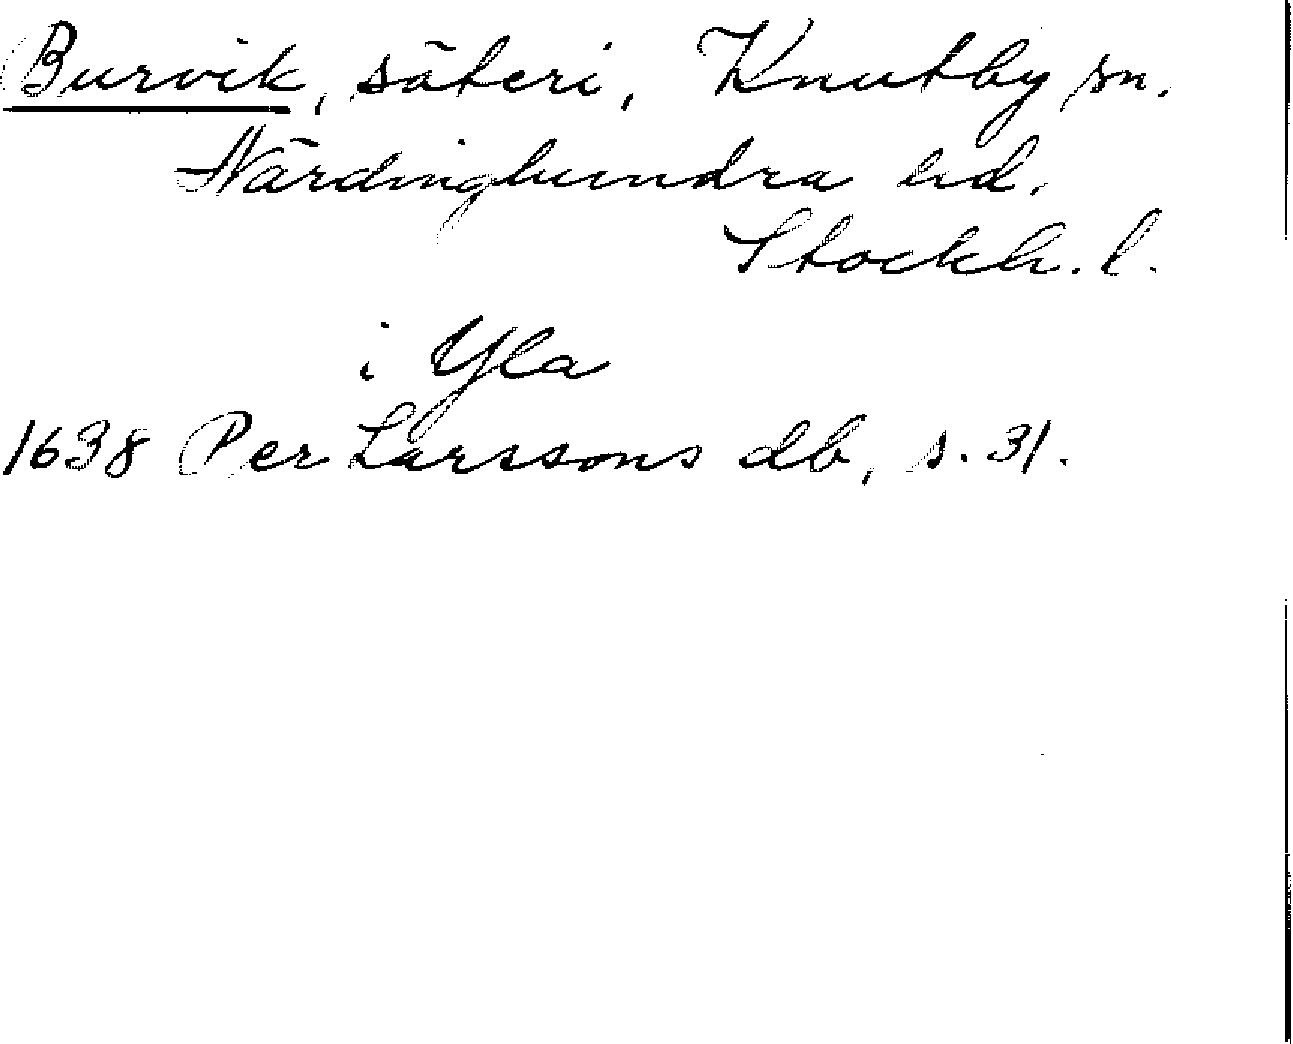 Burvik, säteri, Knutby sn.
Närdinghundra hd.
Stockh. l.
i Yla
1638 Per Larssons db, s. 31.